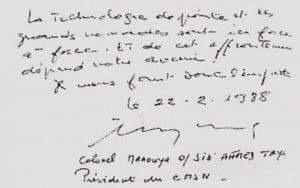 La technologie de pointe et les
grands nomades sont ici face
à face. Et de cet affrontement
dépend notre avenir.
Il nous faut donc
le 22-2.1988
Colonel MAAOUYA O/ SID' AHMED TAY
Président du CMSN.